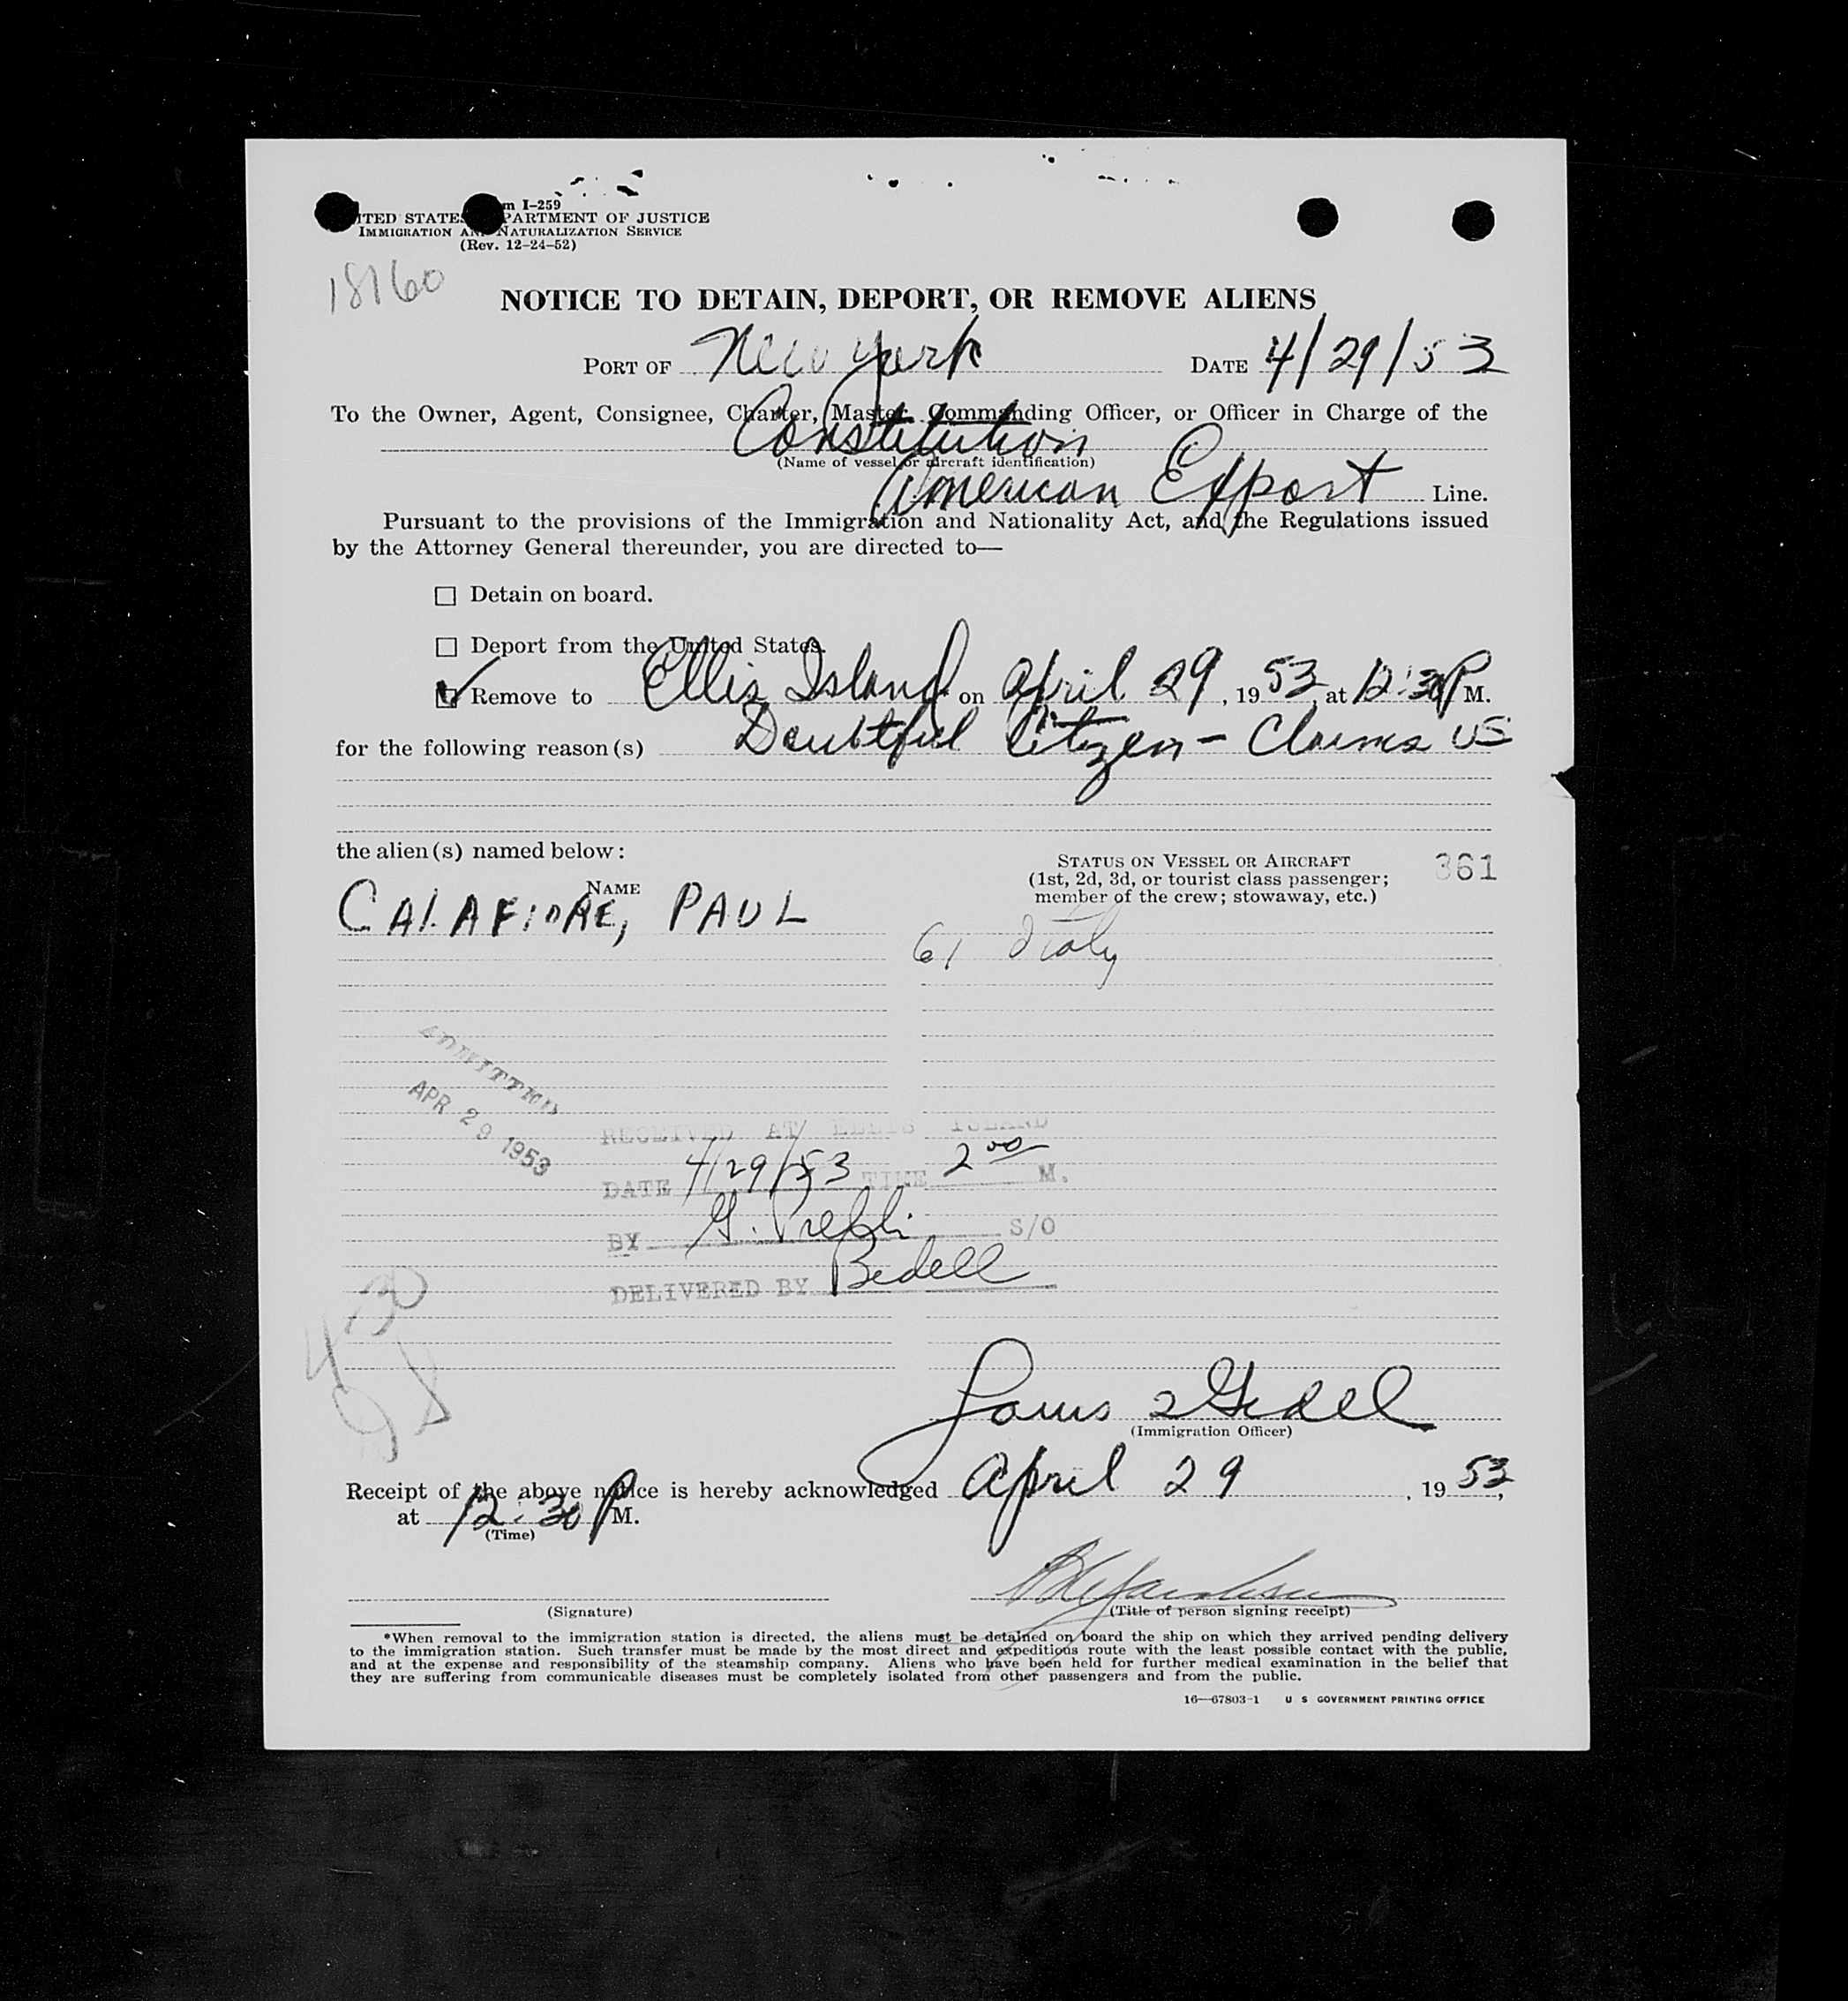 m I-259
ITED STATES PARTMENT OF JUSTICE
IMMIGRATION AND NATURALIZATION SERVICE
(Rev. 12-24-52)
18160
NOTICE TO DETAIN, DEPORT, OR REMOVE ALIENS
PORT OF New York DATE 4/29/53
To the Owner, Agent, Consignee, Charter, Master, Commanding Officer, or Officer in Charge of the
Constitution
(Name of vessel or aircraft identification)
American Export Line.
Pursuant to the provisions of the Immigration and Nationality Act, and the Regulations issued
by the Attorney General thereunder, you are directed to—
☐ Detain on board.
☐ Deport from the United States.
☑ Remove to Ellis Island on April 29, 1953, at 12:30 P M.
for the following reason(s) Doubtful Citizen - Claims US
the alien(s) named below:
NAME
STATUS ON VESSEL OR AIRCRAFT
(1st, 2d, 3d, or tourist class passenger;
member of the crew; stowaway, etc.)
361
CALAFIORE, PAUL
61 Italy
ADMITTED
APR 29 1953
RECEIVED AT ELLIS ISLAND
DATE 4/29/53 TIME 2 00 M.
BY G. S/O
DELIVERED BY Bedell
4-30
Louis Gedel
(Immigration Officer)
Receipt of the above notice is hereby acknowledged April 29, 1953,
at 12:30 P M.
(Time)
(Signature)
(Title of person signing receipt)
*When removal to the immigration station is directed, the aliens must be detained on board the ship on which they arrived pending delivery
to the immigration station. Such transfer must be made by the most direct and expeditious route with the least possible contact with the public,
and at the expense and responsibility of the steamship company. Aliens who have been held for further medical examination in the belief that
they are suffering from communicable diseases must be completely isolated from other passengers and from the public.
16—67803-1 U S GOVERNMENT PRINTING OFFICE